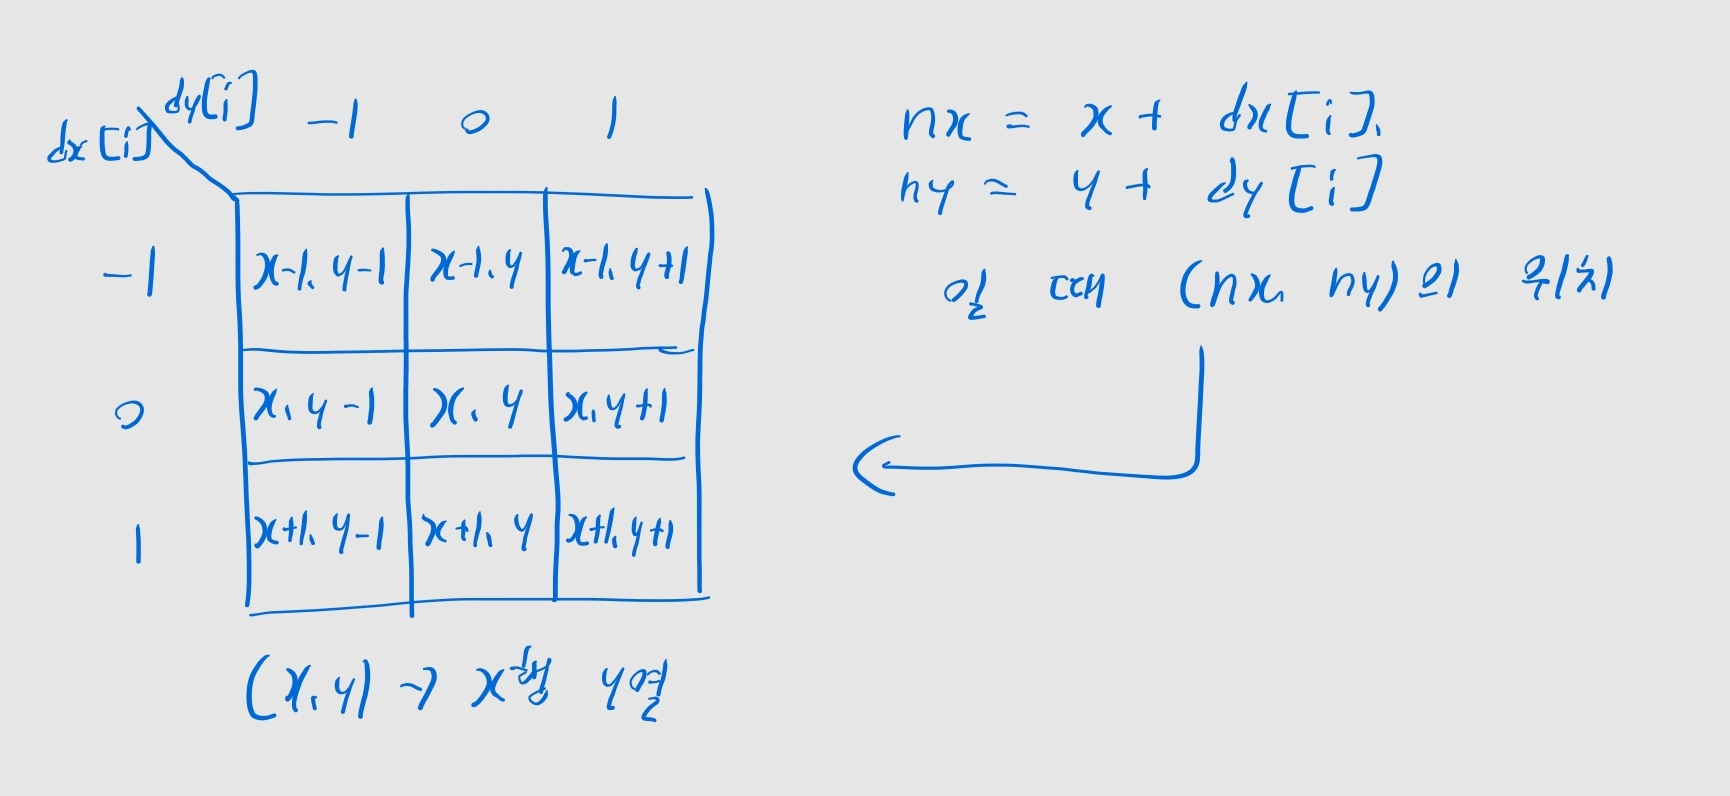 dy[i] -1 0 1
dx[i]
-1 x-1, y-1 x-1, y x-1, y+1
0 x, y-1 x, y x, y+1
1 x+1, y-1 x+1, y x+1, y+1
(x, y) → x행 y열
nx = x + dx[i],
ny = y + dy[i]
일 때 (nx, ny)의 위치